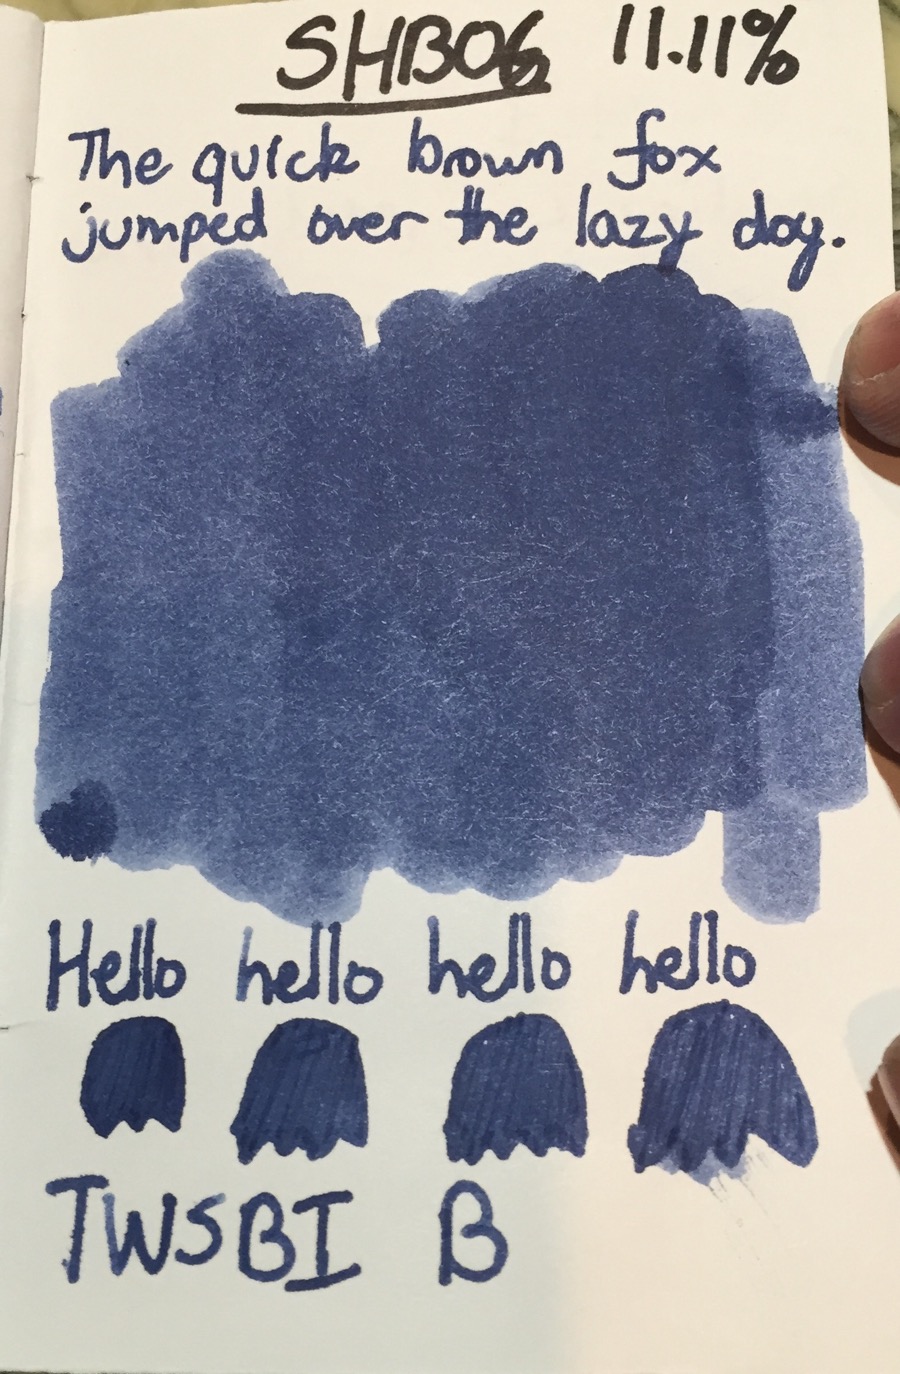 SHB06 11.11%
The quick brown fox
jumped over the lazy dog.
Hello hello hello hello
TWSBI B